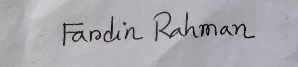 Fardin Rahman